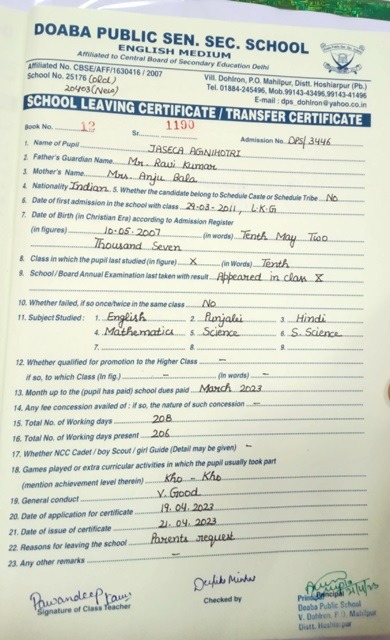 DOABA PUBLIC SEN. SEC. SCHOOL
ENGLISH MEDIUM
Affiliated to Central Board of Secondary Education Delhi
Affiliated No. CBSE/AFF/1630416 / 2007
School No. 25176 (old)
20403 (New)
Vill. Dohlron, P.O. Mahilpur, Distt. Hoshiarpur (Pb.)
Tel. 01884-245496, Mob.99143-43496,99143-41496
E-mail : dps_dohlron@yahoo.co.in
SCHOOL LEAVING CERTIFICATE / TRANSFER CERTIFICATE
Book No. 12 Sr. 1190 Admission No. DPS/3446
1. Name of Pupil JASECA AGNIHOTRI
2. Father's Guardian Name Mr. Ravi Kumar
3. Mother's Name Mrs. Anju Bala
4. Nationality Indian 5. Whether the candidate belong to Schedule Caste or Schedule Tribe No
6. Date of first admission in the school with class 29-03-2011, L.K.G
7. Date of Birth (in Christian Era) according to Admission Register
(in figures) 10-05-2007 (in words) Tenth May Two
Thousand Seven
8. Class in which the pupil last studied (in figure) X (in Words) Tenth
9. School / Board Annual Examination last taken with result Appeared in class X
10. Whether failed, if so once/twice in the same class No
11. Subject Studied : 1. English 2. Punjabi 3. Hindi
4. Mathematics 5. Science 6. S. Science
7. 8. 9.
12. Whether qualified for promotion to the Higher Class –
if so, to which Class (In fig.) – (In words) –
13. Month up to the (pupil has paid) school dues paid March 2023
14. Any fee concession availed of : if so, the nature of such concession –
15. Total No. of Working days 208
16. Total No. of Working days present 206
17. Whether NCC Cadet / boy Scout / girl Guide (Detail may be given) –
18. Games played or extra curricular activities in which the pupil usually took part
(mention achievement level therein) Kho - Kho
19. General conduct V. Good
20. Date of application for certificate 19.04.2023
21. Date of issue of certificate 21.04.2023
22. Reasons for leaving the school Parents request
23. Any other remarks –
Pawandeep Kaur
Signature of Class Teacher
Checked by
Principal
Doaba Public School
V. Dohlron, P.O. Mahilpur
Distt. Hoshiarpur